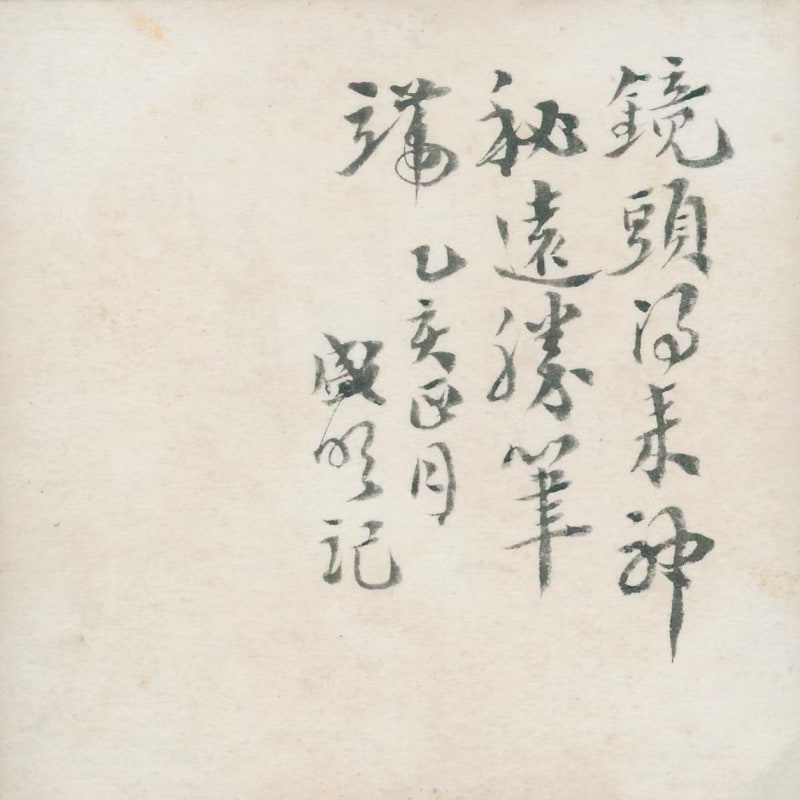 鏡頭得來神
秘遠勝筆
端
乙亥正月
盛明記